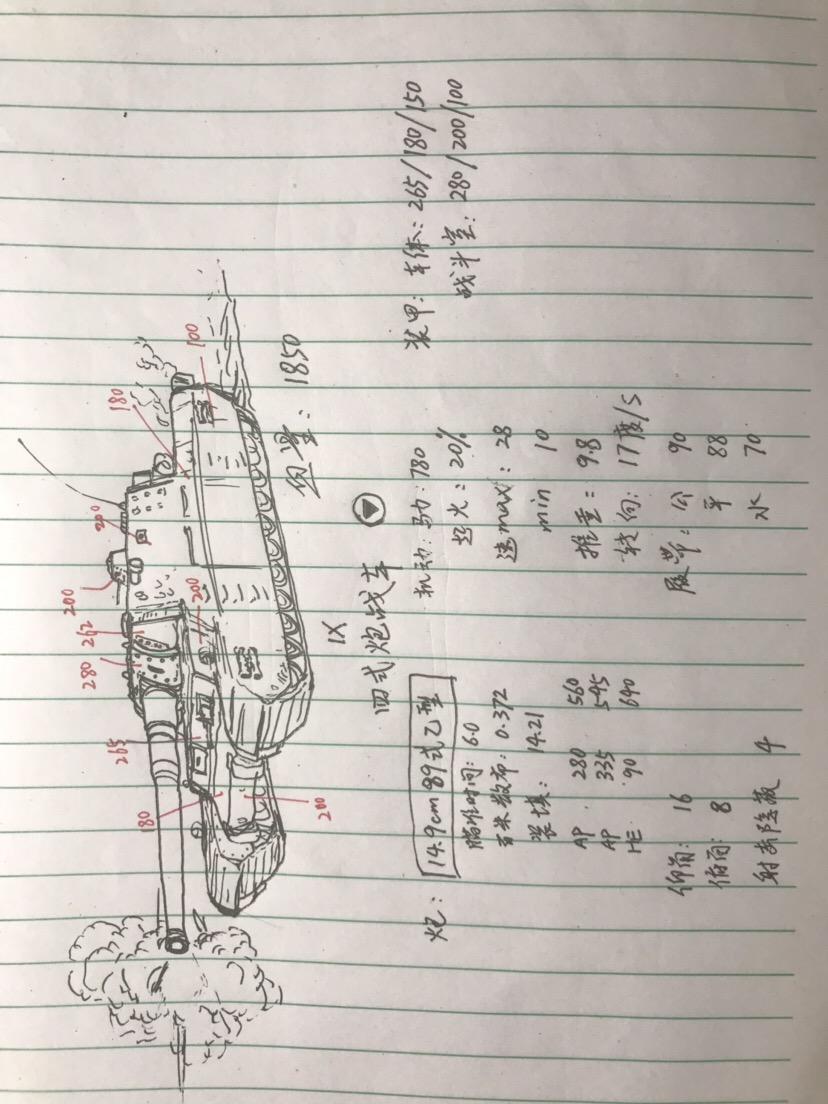 180
200
200
262
280
265
180
200
200
100
血量：1850
IX
四式炮战车
炮：14.9cm 89式乙型
瞄准时间：6.0
百米散布：0.372
装填：14.21
AP 280 560
AP 335 545
HE 90 640
仰角：16
俯角：8
射击隐蔽 4
机动：马力：780
起火：20%
速max：28
min 10
推重：9.8
转向：17度/S
履带：公 90
平 88
水 70
装甲：车体：265/180/150
战斗室：280/200/100